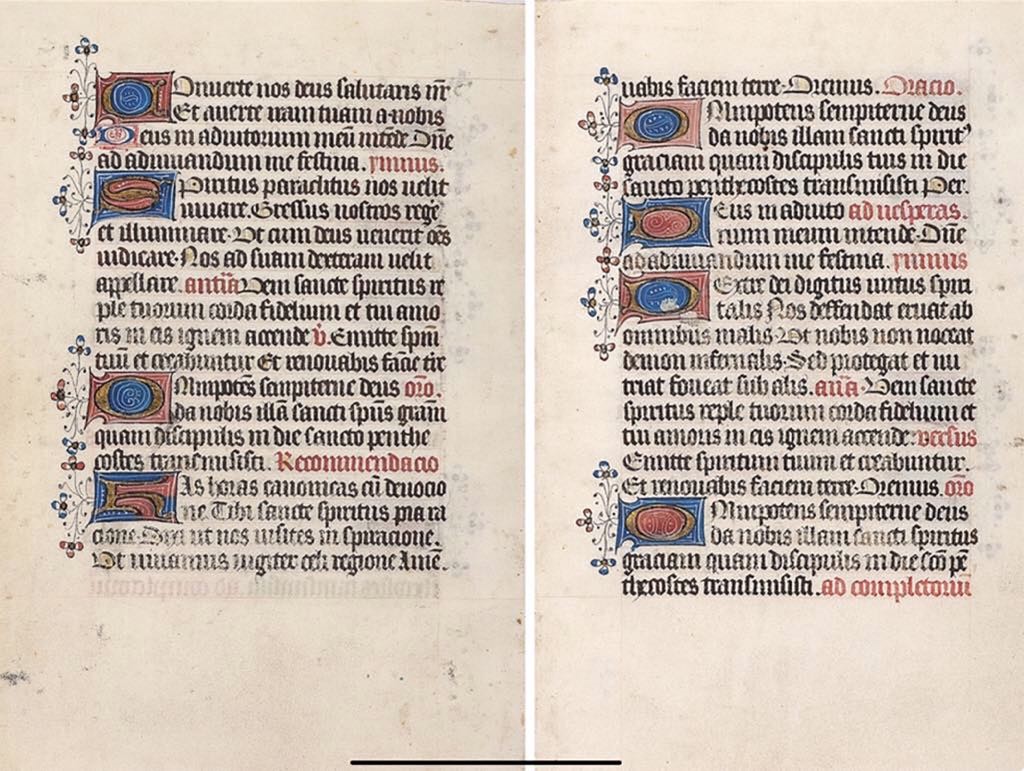 Converte nos deus salutaris nr̄
Et averte iram tuam a nobis
Deus in adiutorium meū intēde Dn̄e
ad adiuvandum me festina. ymnus.
Spiritus paraclitus nos velit
iuvare. Gressus nostros rege
et illuminare. Ut cum deus venerit oēs
iudicare. Nos ad suam dexteram velit
appellare. antīa Veni sancte spiritus re
ple tuorum corda fidelium et tui amo
ris in eis ignem accende v̄. Emitte spm̄
tuū et creabuntur Et renovabis faciē tr̄e
Omnipotēs sempiterne deus or̄o.
da nobis illā sancti spūs grām
quam discipulis in die sancto penthe
costes transmisisti. Recommendacio
Has horas canonicas cū devocio
ne Tibi sancte spiritus pia ra
cione. Dixi ut nos visites inspiracione.
Ut vivamus iugiter celi regione Amē.
vabis faciem terre. Oremus. Oracio.
Omnipotens sempiterne deus
da nobis illam sancti spirit⁹
graciam quam discipulis tuis in die
sancto penthecostes transmisisti Per.
Deus in adiuto ad vesperas.
rium meum intende. Dn̄e
ad adiuvandum me festina. ymnus
Dextre dei digitus virtus spiri
talis Nos deffendat eruat ab
omnibus malis. Ut nobis non noceat
demon infernalis. Sed protegat et nu
triat foveat sub alis. an̄a. Veni sancte
spiritus reple tuorum corda fidelium et
tui amoris in eis ignem accende. versus
Emitte spiritum tuum et creabuntur.
Et renovabis faciem terre. Oremus. or̄o
Omnipotens sempiterne deus
da nobis illam sancti spiritus
graciam quam discipulis in die scō pe
thecostes transmisisti. ad completoriū